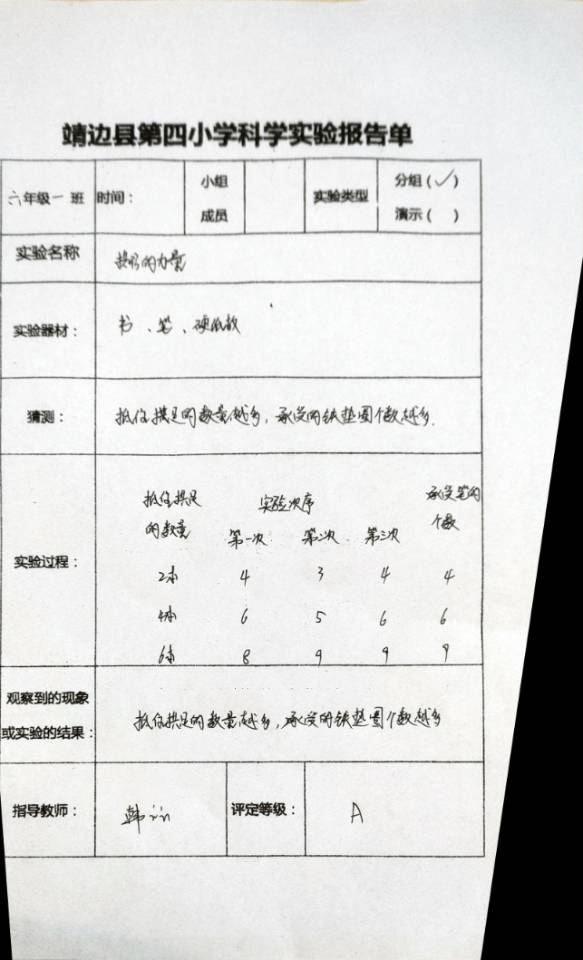 靖边县第四小学科学实验报告单
六年级一班 时间： 小组成员 实验类型 分组(✓) 演示( )
实验名称 拱形的力量
实验器材： 书、笔、硬纸数
猜测： 抵住拱足的数量越多，承受的铁垫圈个数越多.
实验过程：
抵住拱足的数量 实验次序 承受笔的个数
第一次 第二次 第三次
2本 4 3 4 4
4本 6 5 6 6
6本 8 9 9 9
观察到的现象
或实验的结果： 抵住拱足的数量越多，承受的铁垫圈个数越多
指导教师： 韩 评定等级： A